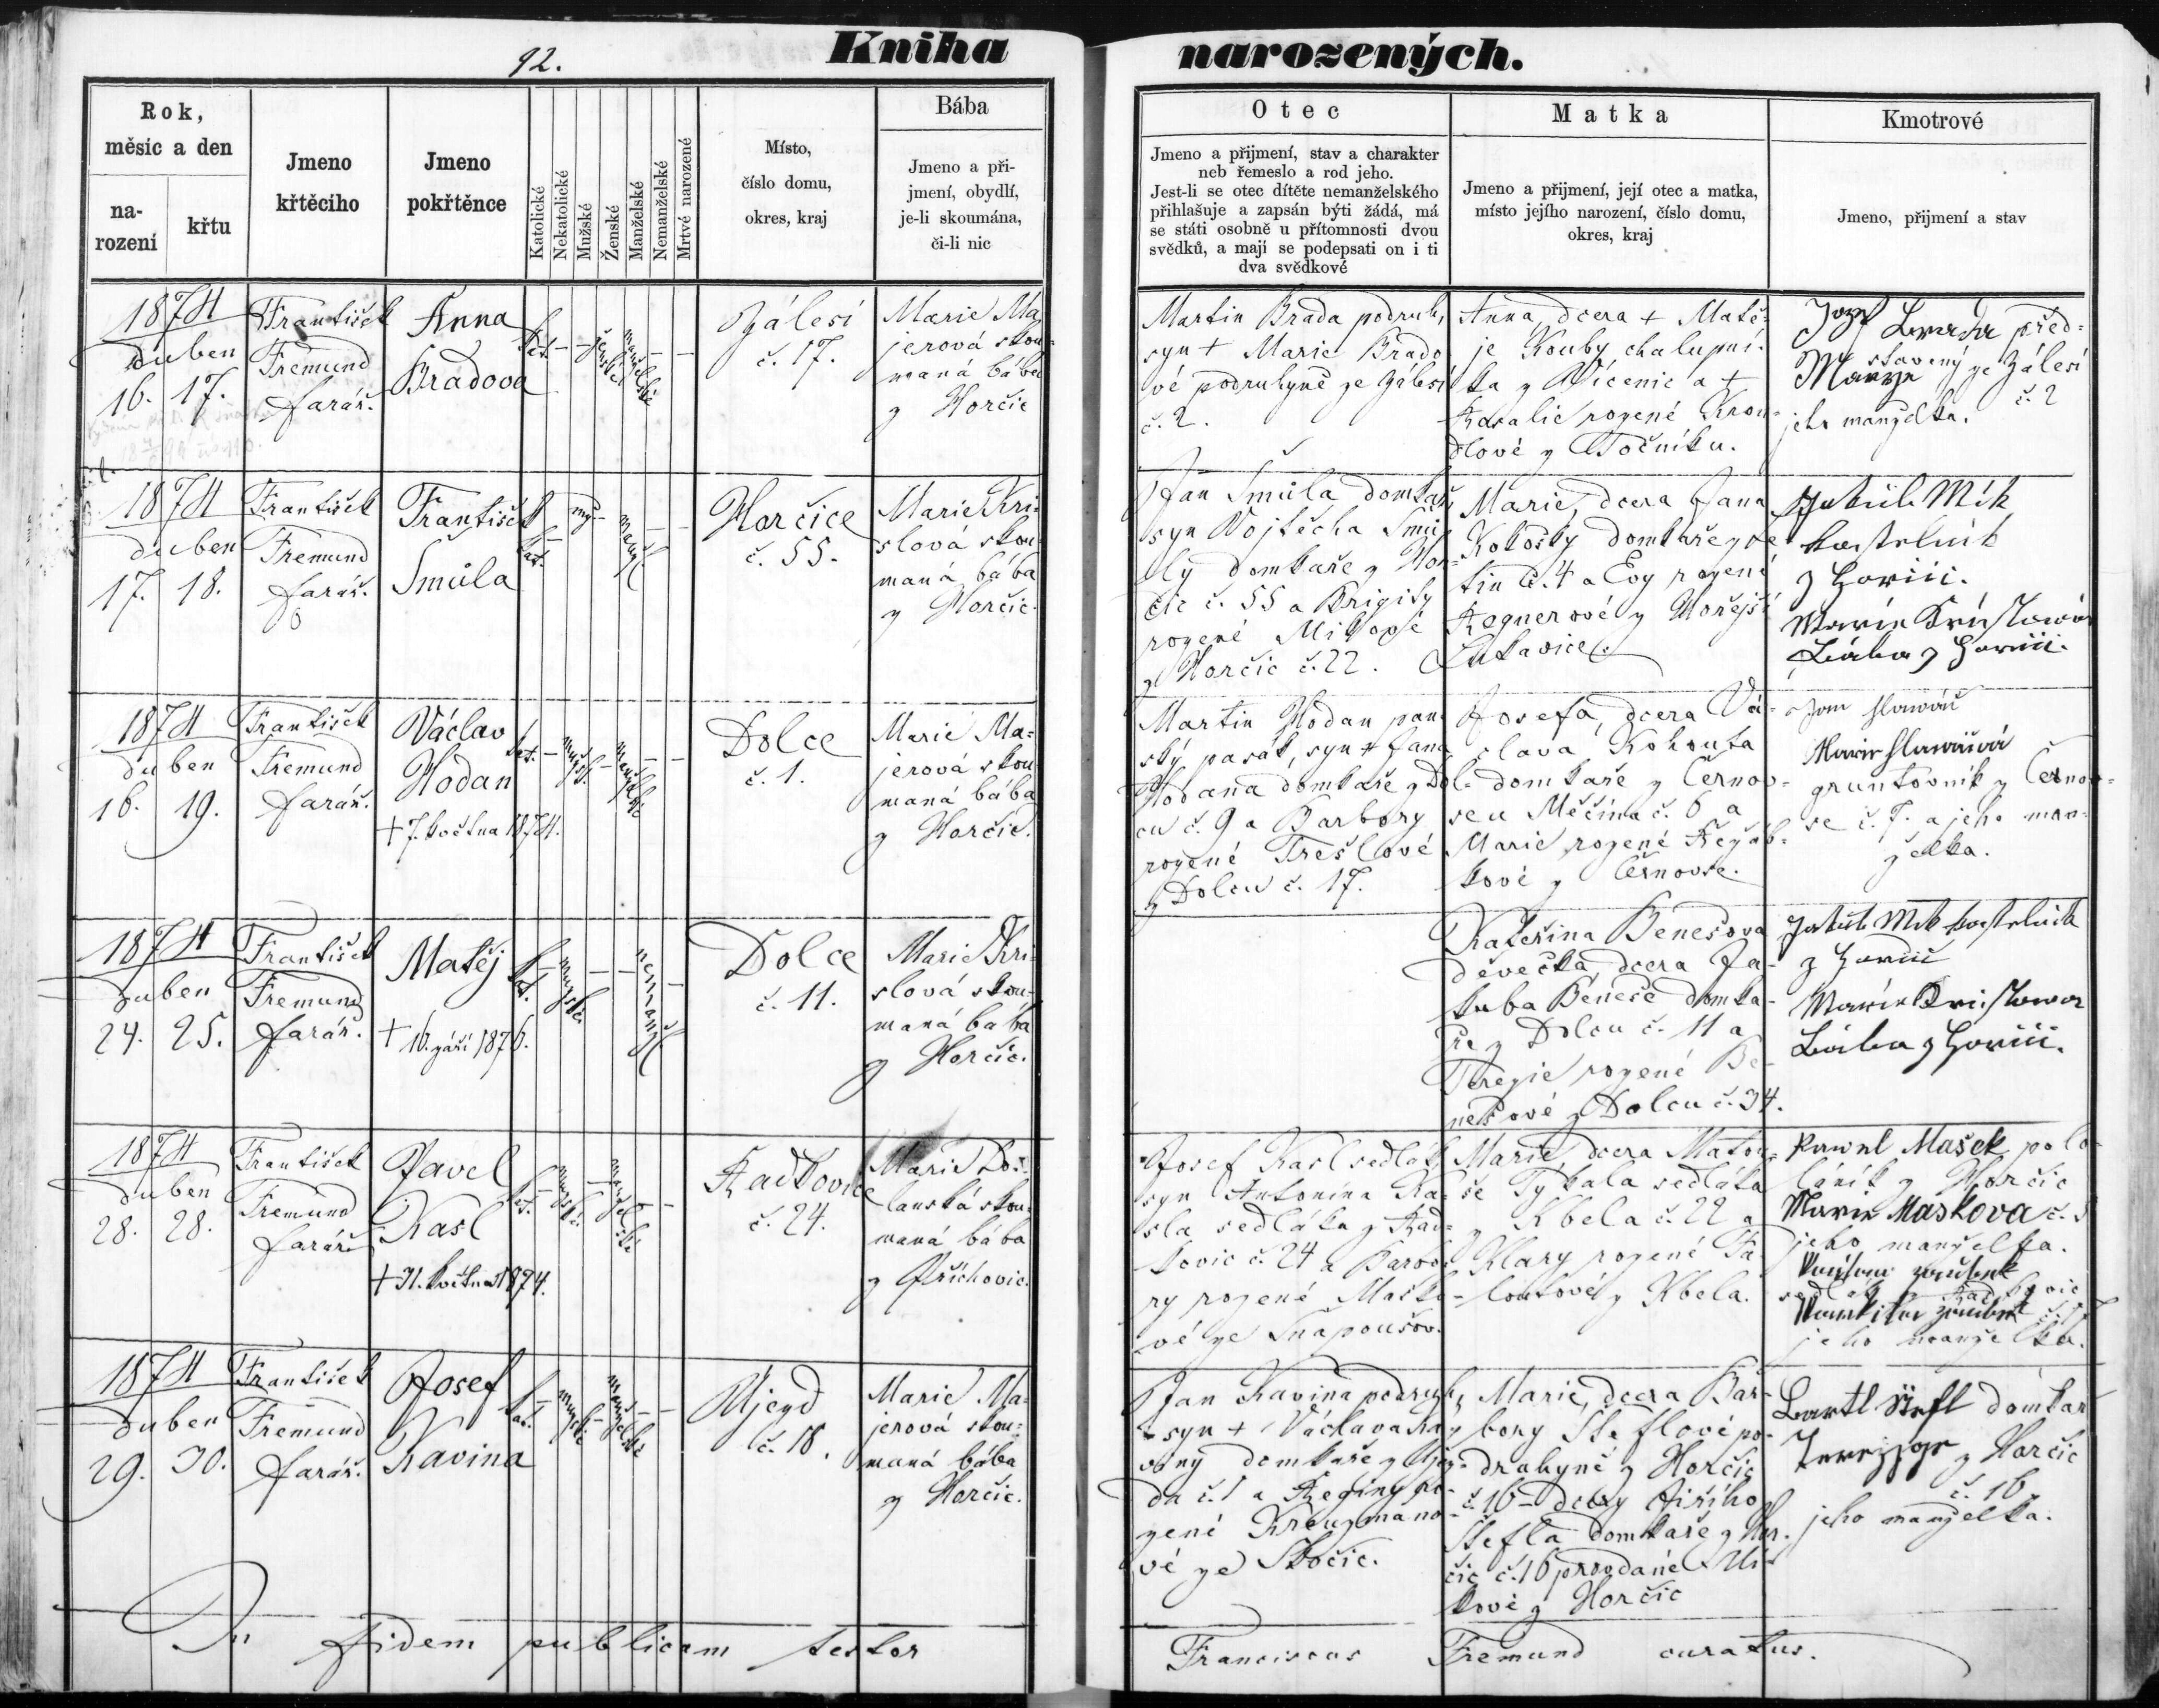 92.
Kniha narozených.
Rok,
měsic a den
na-
rození
křtu
Jmeno
křtěciho
Jmeno
pokřtěnce
Katolické
Nekatolické
Mužské
Ženské
Manželské
Nemanželské
Mrtvé narozené
Místo,
číslo domu,
okres, kraj
Bába
Jmeno a při-
jmení, obydlí,
je-li skoumána,
či-li nic
Otec
Jmeno a přijmení, stav a charakter
neb řemeslo a rod jeho.
Jest-li se otec dítěte nemanželského
přihlašuje a zapsán býti žádá, má
se státi osobně u přítomnosti dvou
svědků, a mají se podepsati on i ti
dva svědkové
Matka
Jmeno a přijmení, její otec a matka,
místo jejího narození, číslo domu,
okres, kraj
Kmotrové
Jmeno, přijmení a stav
1874
duben
16. 17.
František
Fremund
farář.
Anna
Bradova
kat.
ženské
manželské
Zálesi
č. 17.
Marie Ma-
jerová skou-
maná bába
z Horčic
Martin Brada podruh,
syn + Marie Brado-
vé podruhyně ze Zálesi
č. 2.
Anna, dcera + Matě-
je Kouby chalupní-
ka z Vícenic a +
Rosalie rozené Krou-
dlové z Točníku.
Jozef
před-
stavený ze Zálesi
č. 2
jeho manželka.
1874
duben
17. 18.
František
Fremund
farář.
František
Šmůla
kat.
muž.
manž.
Horčice
č. 55.
Marie Kri-
slová skou-
maná bába
z Horčic.
Jan Šmůla domkář,
syn Vojtěcha Šmů-
ly domkaře z Hor-
čic č. 55 a Brigity
rozené Mikové
z Horčic č. 22.
Marie, dcera Jana
Kokošky domkaře ze
tin č. 4 a Evy rozené
Regnerové z Hořejší
Lukavice.
Jakub Mik
kostelnik
z Horčic.
Marie Krislowa
Bába z Horčic.
1874
duben
16. 19.
František
Fremund
farář.
Václav
Hodan
+ 7. května 1874.
kat.
mužsk.
manželské
Dolce
č. 1.
Marie Ma-
jerová skou-
maná bába
z Horčic.
Martin Hodan pan-
ský pasák, syn + Jana
Hodana domkaře z Dol-
cu č. 9 a Barbory
rozené Trešlové
z Dolcu č. 17.
Josefa, dcera Vá-
clava Kohouta
domkaře z Černov-
se u Měčína č. 6 a
Marie rozené Řezáb-
kové z Černovse.
Jan Hawač
gruntovník z Černov-
se č. 7. a jeho man-
želka.
1874
duben
24. 25.
František
Fremund
farář.
Matěj
+ 16. září 1876.
kat.
mužské
nemanž.
Dolce
č. 11.
Marie Kri-
slová skou-
maná bába
z Horčic.
Kateřina Benešova
děvečka, dcera Ja-
kuba Beneše domka-
ře z Dolcu č. 11 a
Terezie rozené Be-
nešové z Dolcu č. 34.
Jakub Mik kostelnik
z Horčic
Marie Krislowa
Bába z Horčic.
1874
duben
28. 28.
František
Fremund
farář
Pavel
Kasl
+ 31. května 1874.
kat.
mužské
manželské
Radkovice
č. 24.
Marie
lanská skou-
maná bába
z Příchovic.
Josef Kasl sedlák,
syn Antonína Ka-
sla sedláka z Rad-
kovic č. 24 a Barbo-
ry rozené Maško-
vé ze Snapoušov.
Marie, dcera Matou-
še Tykala sedláka
z Kbela č. 22 a
Klary rozené Ta-
loutové z Kbela.
Pawel Mašek polo-
láník z Horčic
Marie Maskova č. 5
jeho manželka.
jeho manželka.
1874
duben
29. 30.
František
Fremund
farář.
Josef
Kavina
kat.
mužské
manželské
Ujezd
č. 18.
Marie Ma-
jerová skou-
maná bába
z Horčic.
Jan Kavina podruh,
syn + Václava Ka-
viny domkaře z Ujez-
da č. 1 a Reginy ro-
zené Kreuzmano-
vé ze Skočic.
Marie, dcera Bar-
bory Šteflové po-
druhyně z Horčic
č. 16 – dcery Jiřího
Štefla domkaře z Hor-
čic č. 16 provdané Mi-
kové z Horčic
Bartl Štefl domkař
z Horčic
č. 16.
jeho manželka.
In fidem publicam testor
Franciscus Fremund curatus.